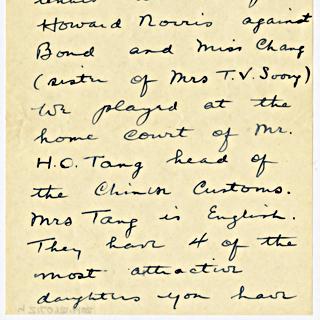 Howard Norris against
Bond and Miss Chang
(sister of Mrs T.V. Soong)
We played at the
home court of Mr.
H.O. Tang head of
the Chinese Customs.
Mrs Tang is English.
They have 4 of the
most attractive
daughters you have